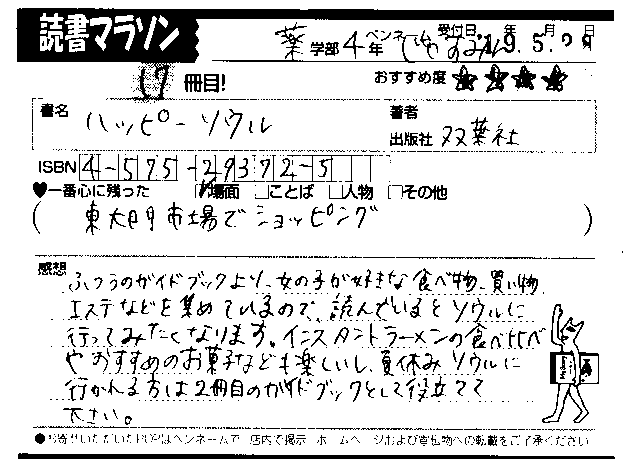 読書マラソン
薬学部4年 ペンネーム 受付日 19.5.09
17冊目!
おすすめ度 ★★★★
書名 ハッピーソウル
著者
出版社 双葉社
ISBN 4-575-29372-5
♥一番心に残った □場面 □ことば □人物 □その他
(東大門市場でショッピング)
感想
ふつうのガイドブックより、女の子が好きな食べ物、買い物
エステなどを集めているので、読んでいるとソウルに
行ってみたくなります。インスタントラーメンの食べ比べ
やおすすめのお菓子なども楽しいし、夏休みソウルに
行かれる方は2冊目のガイドブックとして役立てて
下さい。
●お寄せいただいたPOPはペンネームで 店内で掲示 ホームページおよび書籍物への転載をご了承ください